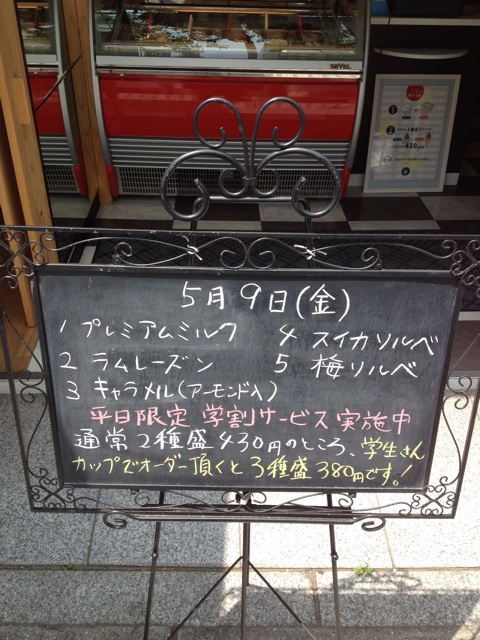 SEVEL
430円
5月9日(金)
1 プレミアムミルク
2 ラムレーズン
3 キャラメル(アーモンド入)
4 スイカソルベ
5 梅ソルベ
平日限定 学割サービス実施中
通常2種盛430円のところ、学生さん
カップでオーダー頂くと3種盛380円です!